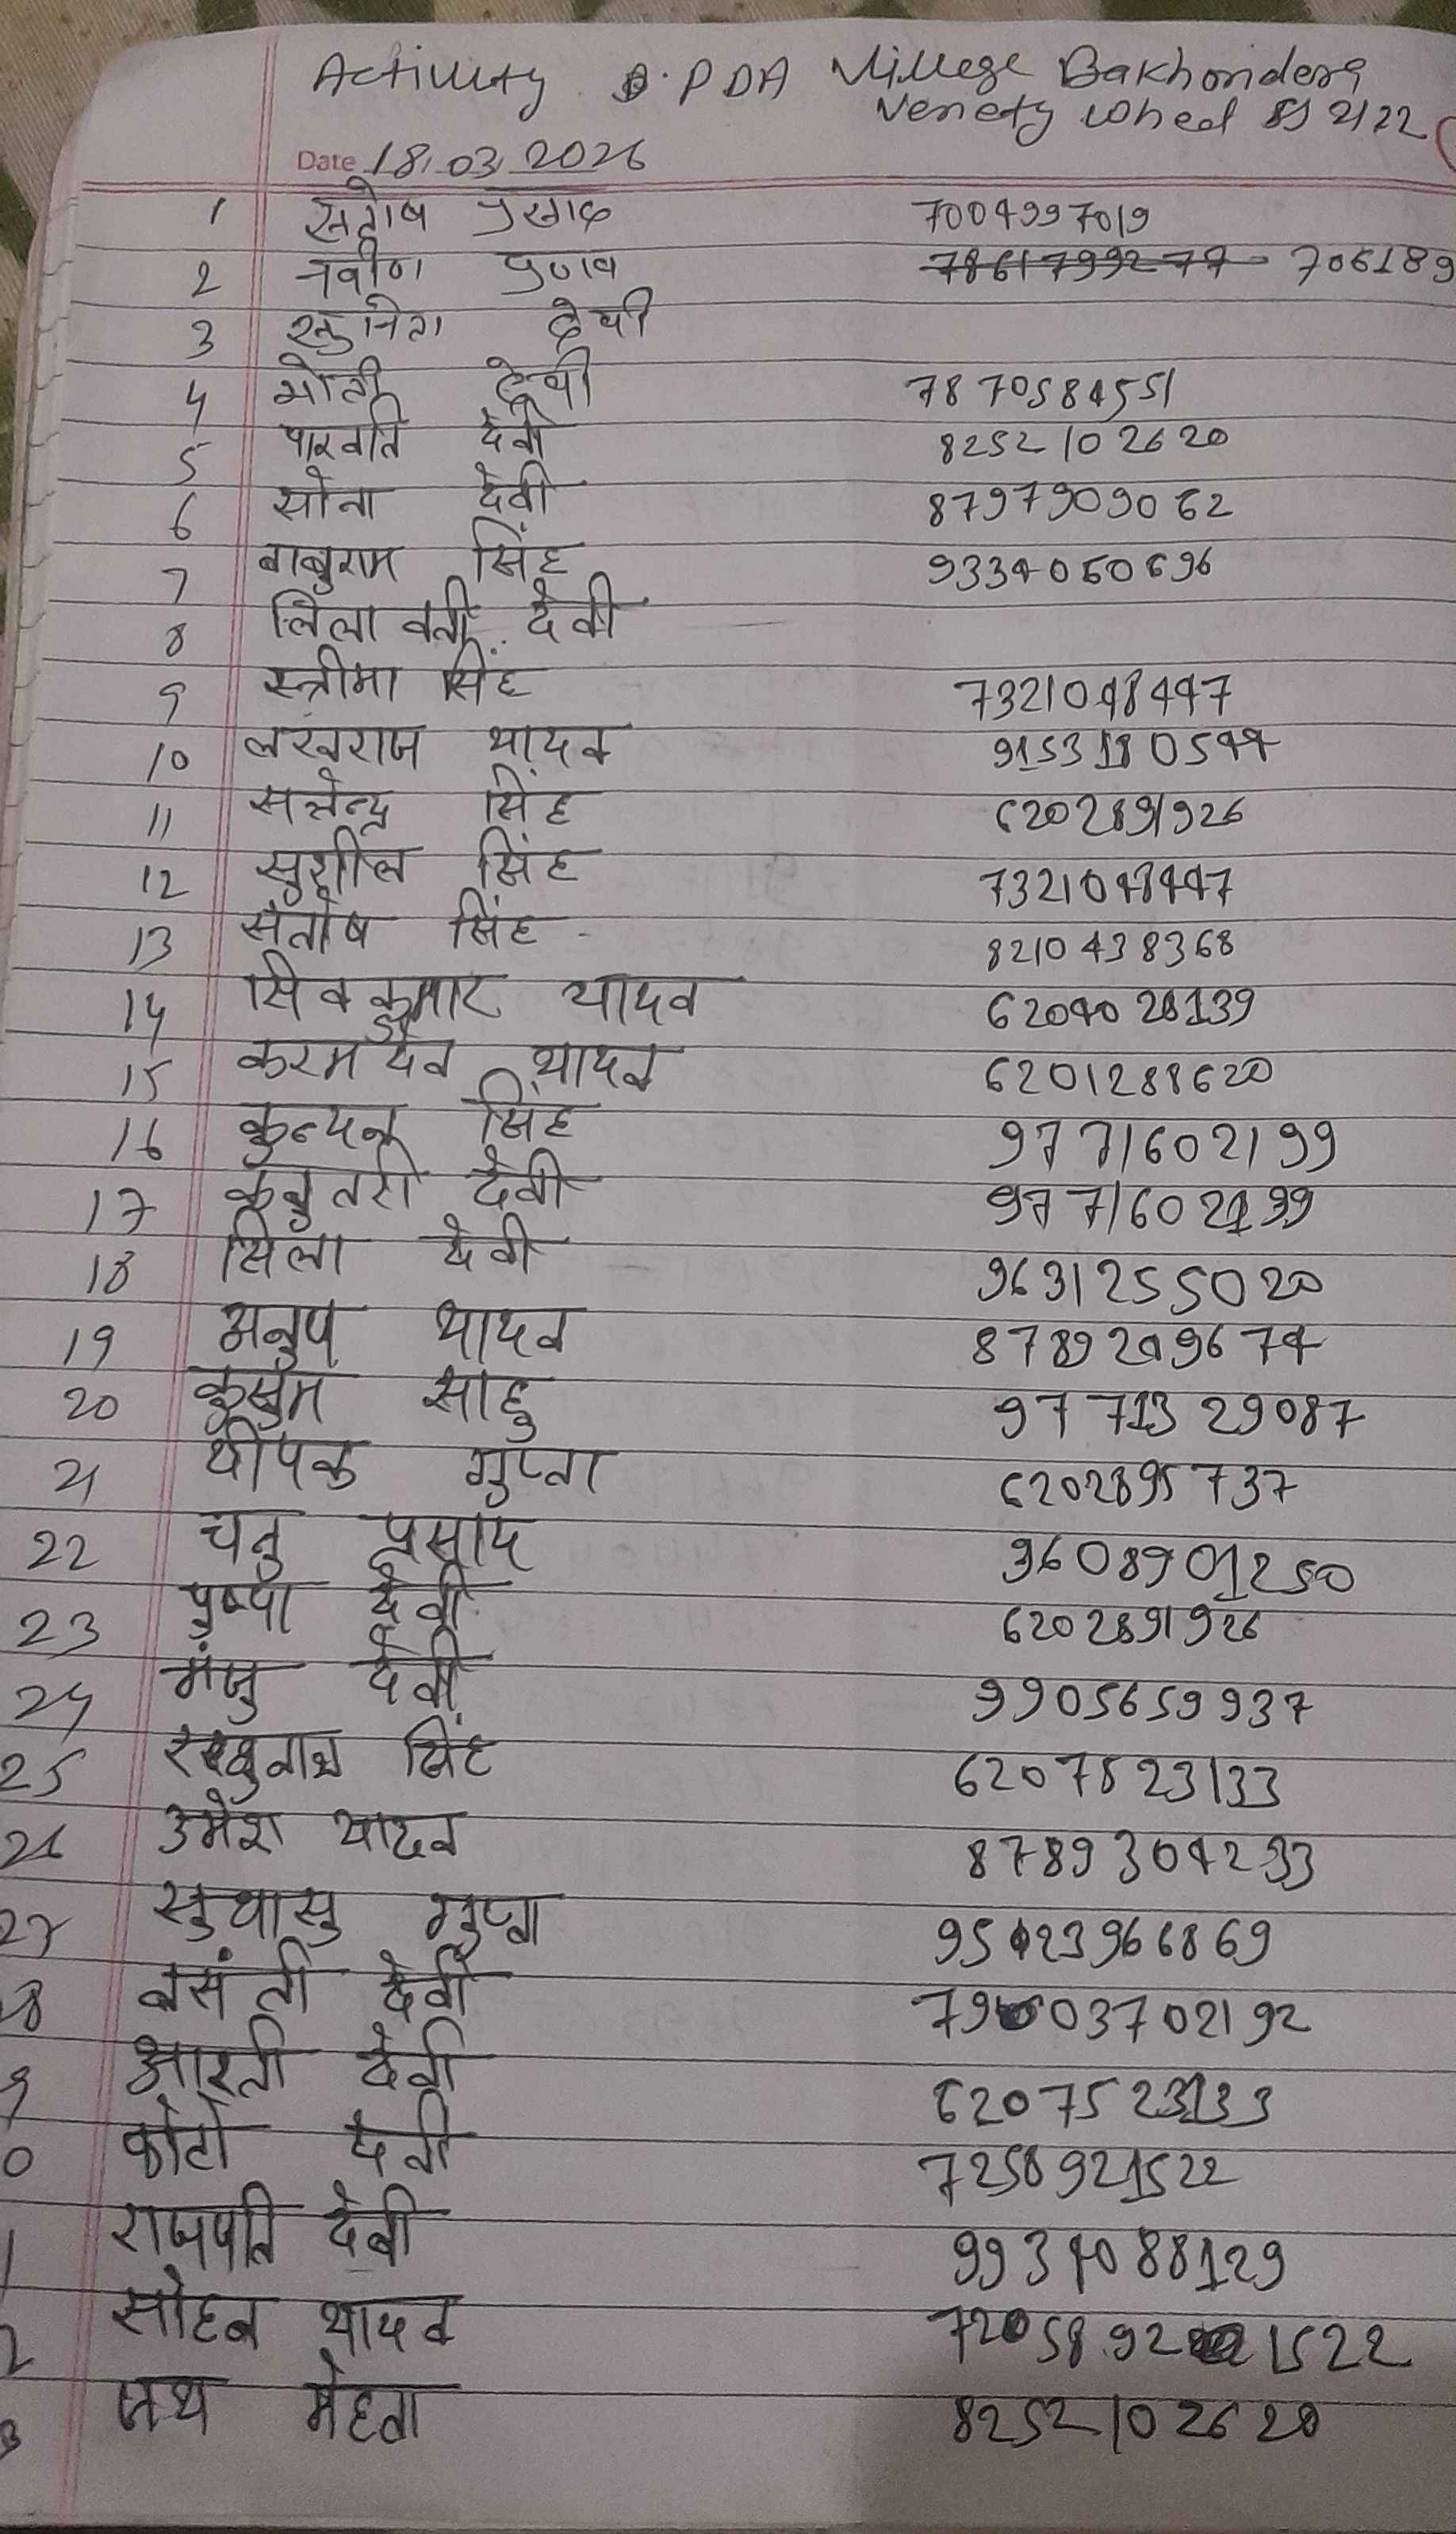 Activity PDA Village Bakhondera
Veriety wheat 2122
Date 18.03.2026
1 संतोष प्रसाद 7004997019
2 नवीन प्रणव 7861799277 706189
3 सुनिता देवी
4 मोती देवी 7870584551
5 पारवति देवी 8252102620
6 सोना देवी 8797909062
7 बाबुराम सिंह 9334060696
8 लिलावती देवी
9 स्त्रीमा सिंह 7321048447
10 लखराज यादव 9153180544
11 सत्तेन्द्र सिंह 6202891926
12 सुशील सिंह 7321048447
13 संतोष सिंह 8210438368
14 सिवकुमार यादव 6204028139
15 करमदेव यादव 6201288620
16 कुन्दन सिंह 9771602199
17 कबुतरी देवी 9771602199
18 सिला देवी 9631255020
19 अनुप यादव 8789209674
20 कुसुम साहु 9771329087
21 दीपक गुप्ता 6202895737
22 चनु प्रसाद 9608901250
23 पुष्पा देवी 6202891926
24 मंजु देवी 9905659937
25 रघुनाथ सिंह 6207523133
26 उमेश यादव 8789304233
27 सुधासु गुप्ता 95423966869
28 बसंती देवी 79603702192
9 आरती देवी 6207523133
0 कोटो देवी 7258921522
1 राजपति देवी 9934088129
2 सोहन यादव 7258921522
3 मेहता 8252102620